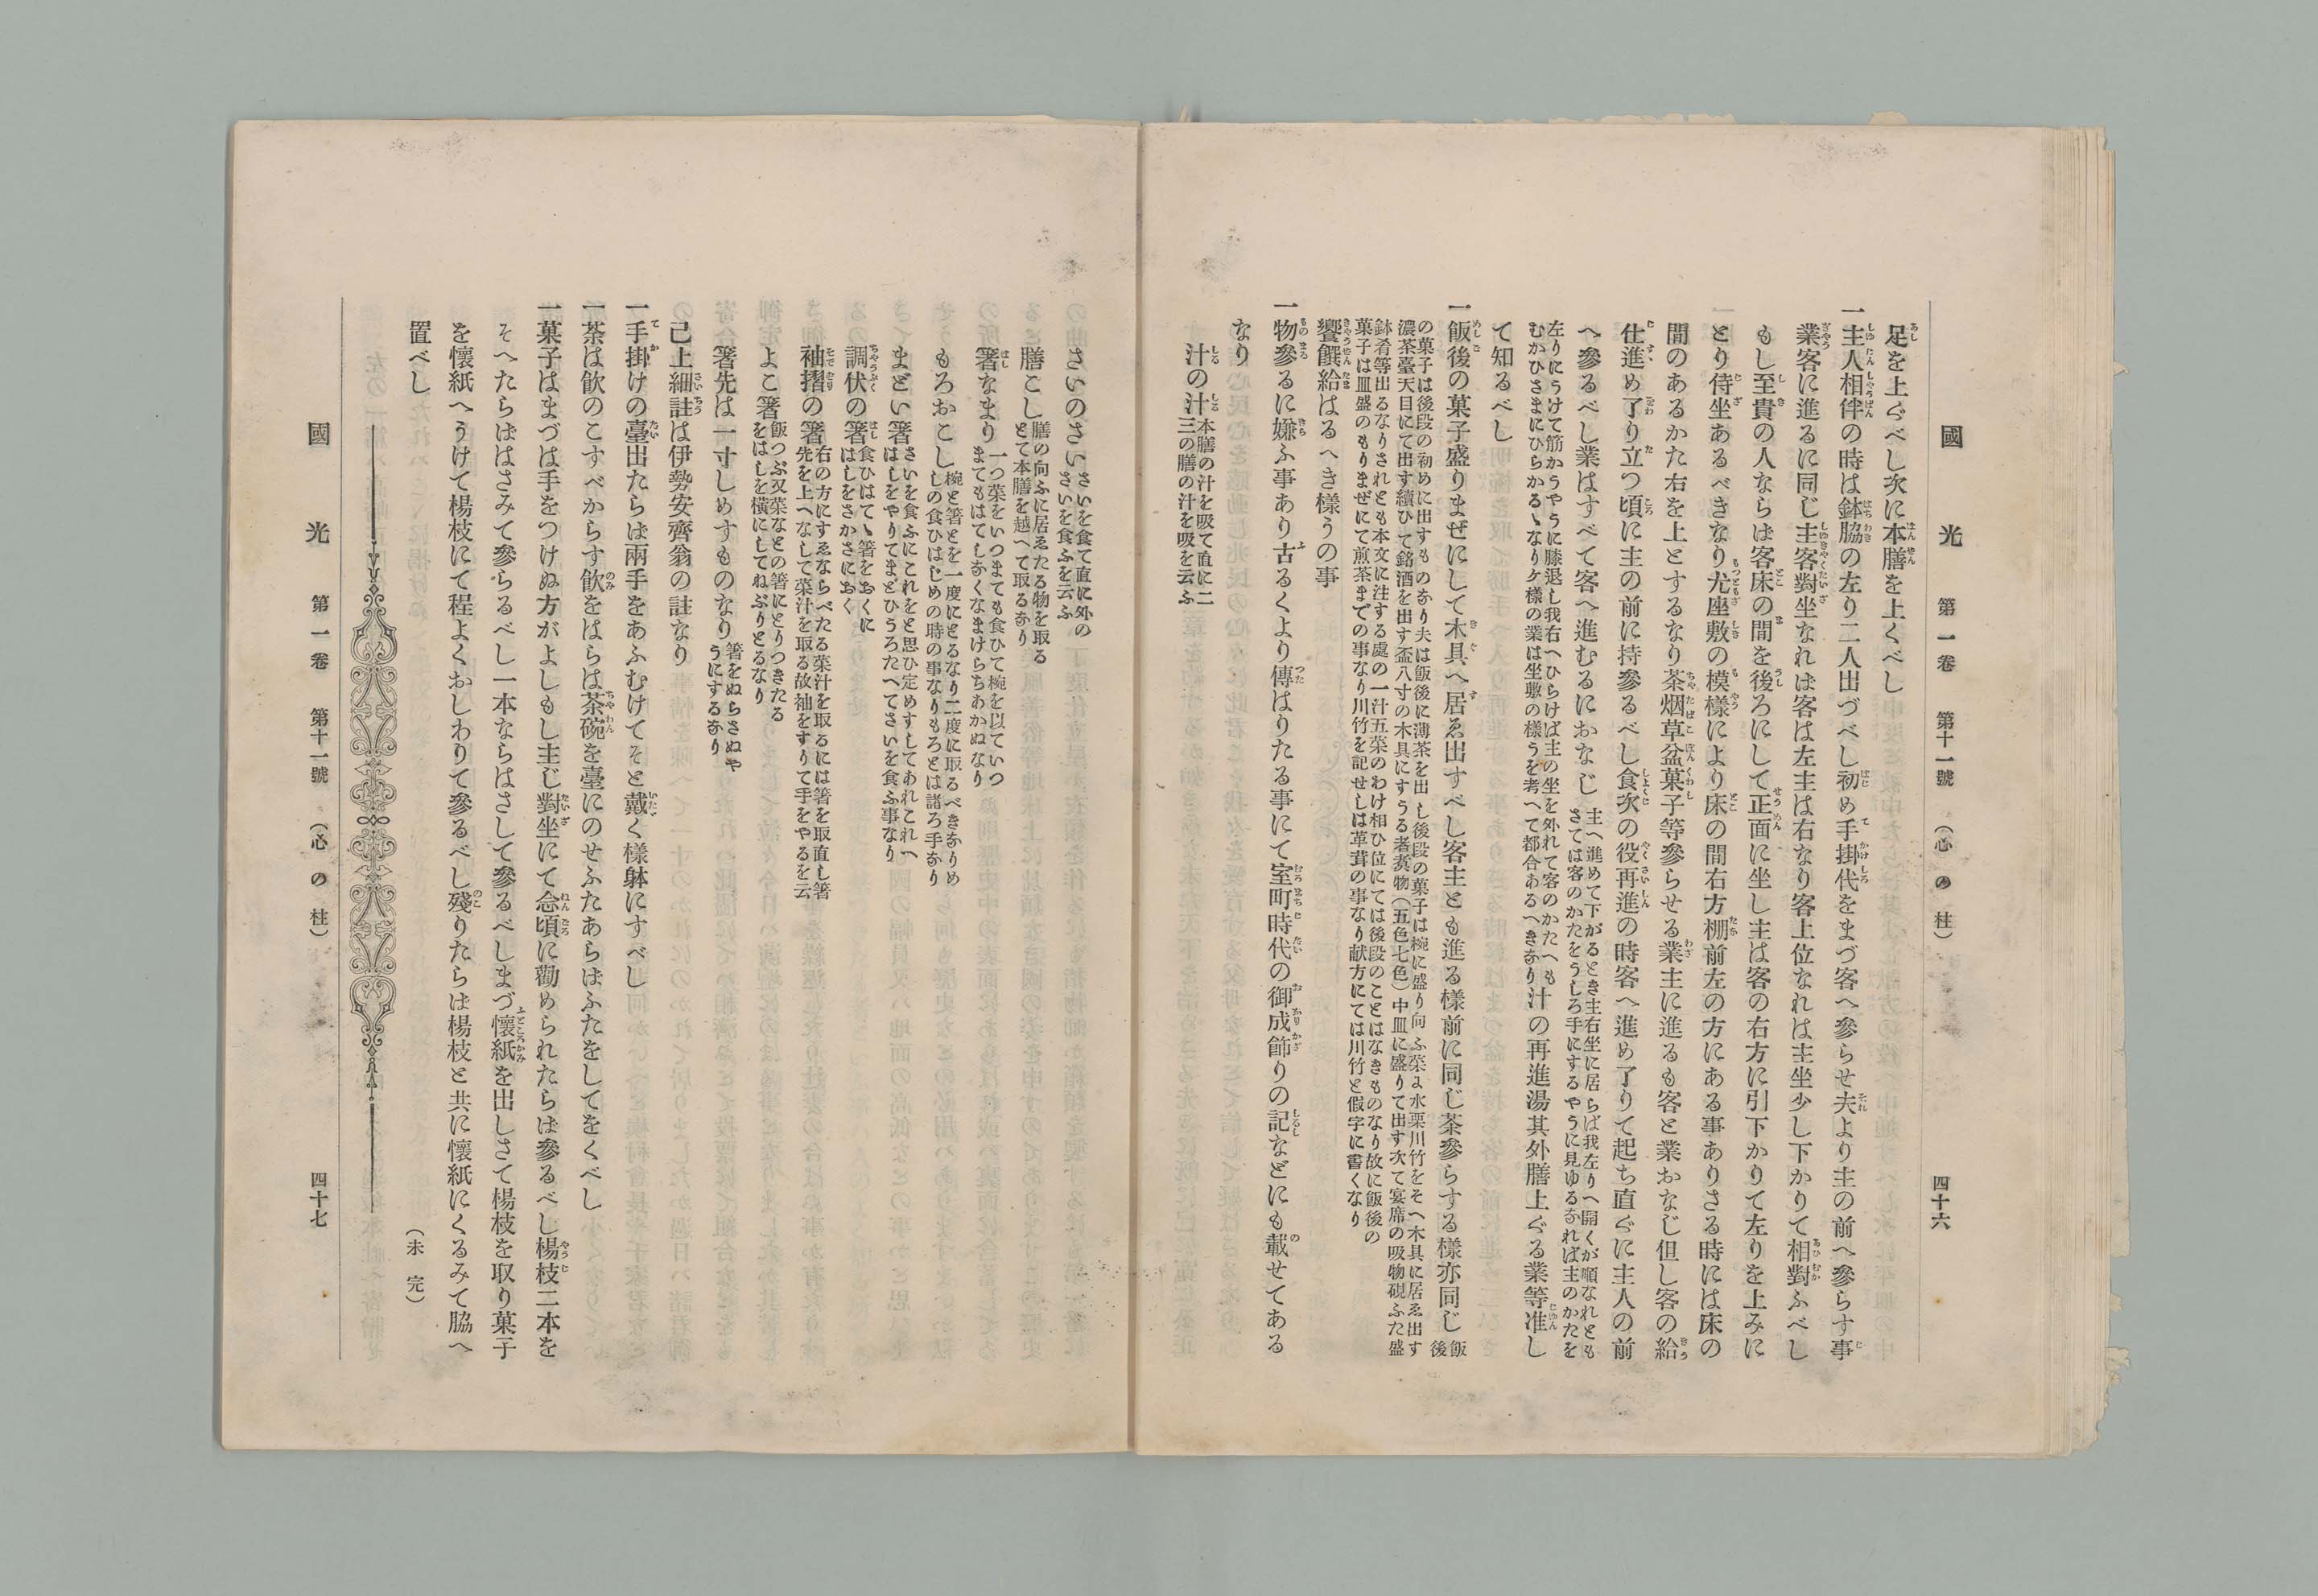 國光 第一卷 第十一號 (心の柱) 四十六
足を上ぐべし次に本膳を上くべし
一主人相伴の時は鉢脇の左り二人出づべし初め手掛代をまづ客へ參らせ夫より主の前へ參らす事
業客に進るに同じ主客對坐なれは客は左主は右なり客上位なれは主坐少し下かりて相對ふべし
もし至貴の人ならは客床の間を後ろにして正面に坐し主は客の右方に引下かりて左りを上みに
とり侍坐あるべきなり尤座敷の模樣により床の間右方棚前左の方にある事ありさる時には床の
間のあるかた右を上とするなり茶烟草盆菓子等參らせる業主に進るも客と業おなじ但し客の給
仕進め了り立つ頃に主の前に持參るべし食次の役再進の時客へ進め了りて起ち直ぐに主人の前
へ參るべし業はすべて客へ進むるにおなじ
主へ進めて下がるとき主右坐に居らば我左りへ開くが順なれとも
さては客のかたをうしろ手にするやうに見ゆるなれば主のかたを
左りにうけて筋かうやうに膝退し我右へひらけば主の坐を外れて客のかたへも
むかひさまにひらかるゝなりケ樣の業は坐敷の樣うを考へて都合あるへきなり
汁の再進湯其外膳上ぐる業等准し
て知るべし
一飯後の菓子盛りまぜにして木具へ居ゑ出すべし客主とも進る樣前に同じ茶參らする樣亦同じ
飯後
の菓子は後段の初めに出すものなり夫は飯後に薄茶を出し後段の菓子は椀に盛り向ふ菜ゟ水栗川竹をそへ木具に居ゑ出す
濃茶臺天目にて出す續ひて銘酒を出す盃八寸の木具にすうる者羹物(五色七色)中皿に盛りて出す次て宴席の吸物硯ふた盛
鉢肴等出るなりされとも本文に注する處の一汁五菜のわけ相ひ位にては後段のことはなきものなり故に飯後の
菓子は皿盛のもりまぜにて煎茶までの事なり川竹を記せしは革茸の事なり献方にては川竹と假字に書くなり
饗饌給はるへき樣うの事
一物參るに嫌ふ事あり古るくより傳はりたる事にて室町時代の御成飾りの記などにも載せてある
なり
汁の汁
本膳の汁を吸て直に二
三の膳の汁を吸を云ふ
さいのさい
さいを食て直に外の
さいを食ふを云ふ
膳こし
膳の向ふに居ゑたる物を取る
とて本膳を越へて取るなり
箸なまり
一つ菜をいつまても食ひて椀を以ていつ
まてもはてしなくなまけらちあかぬなり
もろおこし
椀と箸とを一度にとるなり二度に取るべきなりめ
しの食ひはじめの時の事なりもろとは諸ろ手なり
まどい箸
さいを食ふにこれをと思ひ定めすしてあれこれへ
はしをやりてまどひうろたへてさいを食ふ事なり
調伏の箸
食ひはてゝ箸をおくに
はしをさかさにおく
袖摺の箸
右の方にすゑならべたる菜汁を取るには箸を取直し箸
先を上へなして菜汁を取る故袖をすりて手をやるを云
よこ箸
飯つぶ又菜なとの箸にとりつきたる
をはしを横にしてねぶりとるなり
箸先は一寸しめすものなり
箸をぬらさぬや
うにするなり
己上細註は伊勢安齊翁の註なり
一手掛けの臺出たらは兩手をあふむけてそと戴く樣躰にすべし
一茶は飮のこすべからす飮をはらは茶碗を臺にのせふたあらはふたをしてをくべし
一菓子はまづは手をつけぬ方がよしもし主じ對坐にて念頃に勸められたらは參るべし楊枝二本を
そへたらははさみて參らるべし一本ならはさして參るべしまづ懷紙を出しさて楊枝を取り菓子
を懷紙へうけて楊枝にて程よくおしわりて參るべし殘りたらは楊枝と共に懷紙にくるみて脇へ
置べし
(未完)
國光 第一卷 第十一號 (心の柱) 四十七